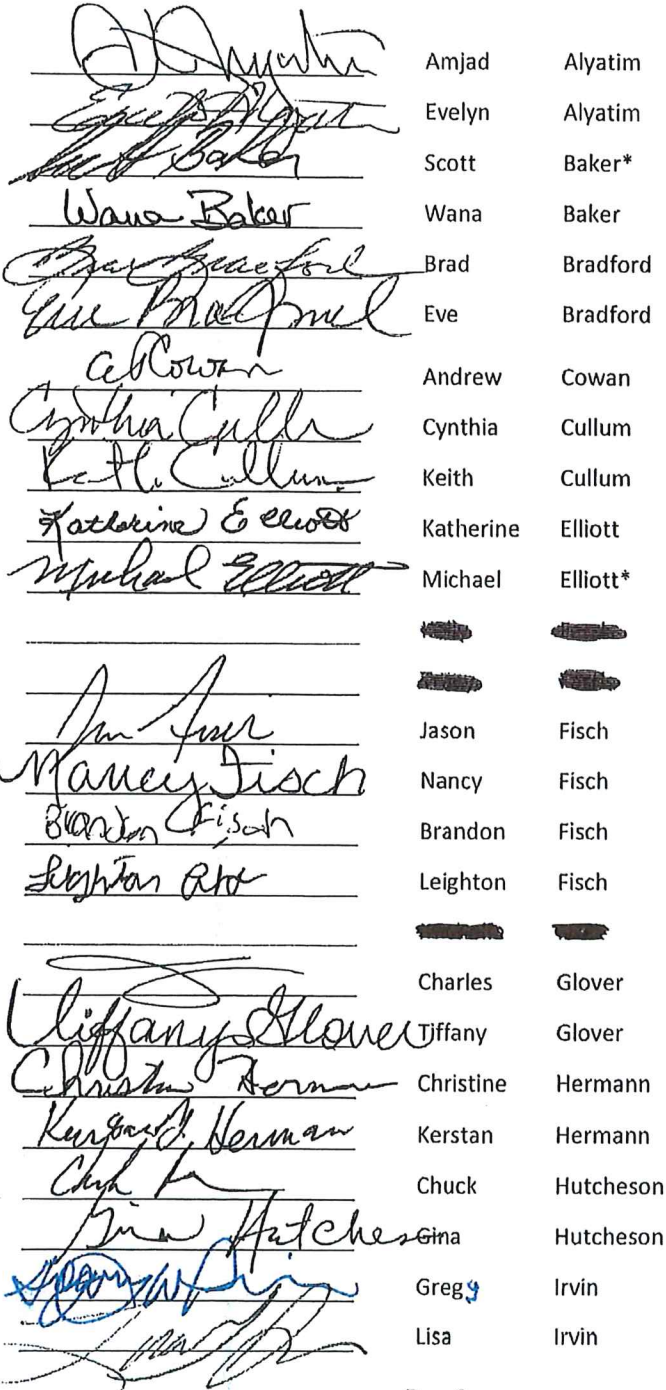 Amjad Alyatim
Evelyn Alyatim
Baker Scott Baker*
Wana Baker Wana Baker
Brad Bradford Brad Bradford
Eve Bradford Eve Bradford
Cowan Andrew Cowan
Cynthia Cynthia Cullum
Keith Cullum Keith Cullum
Katherine Elliott Katherine Elliott
Michael Elliott Michael Elliott*
Jason Fisch
Nancy Fisch Nancy Fisch
Brandon Fisch Brandon Fisch
Leighton Leighton Fisch
Charles Glover
Tiffany Glover Tiffany Glover
Christine Christine Hermann
Kerstan Hermann
Chuck Hutcheson
Gina Hutcheson Gina Hutcheson
Gregg Irvin
Lisa Irvin